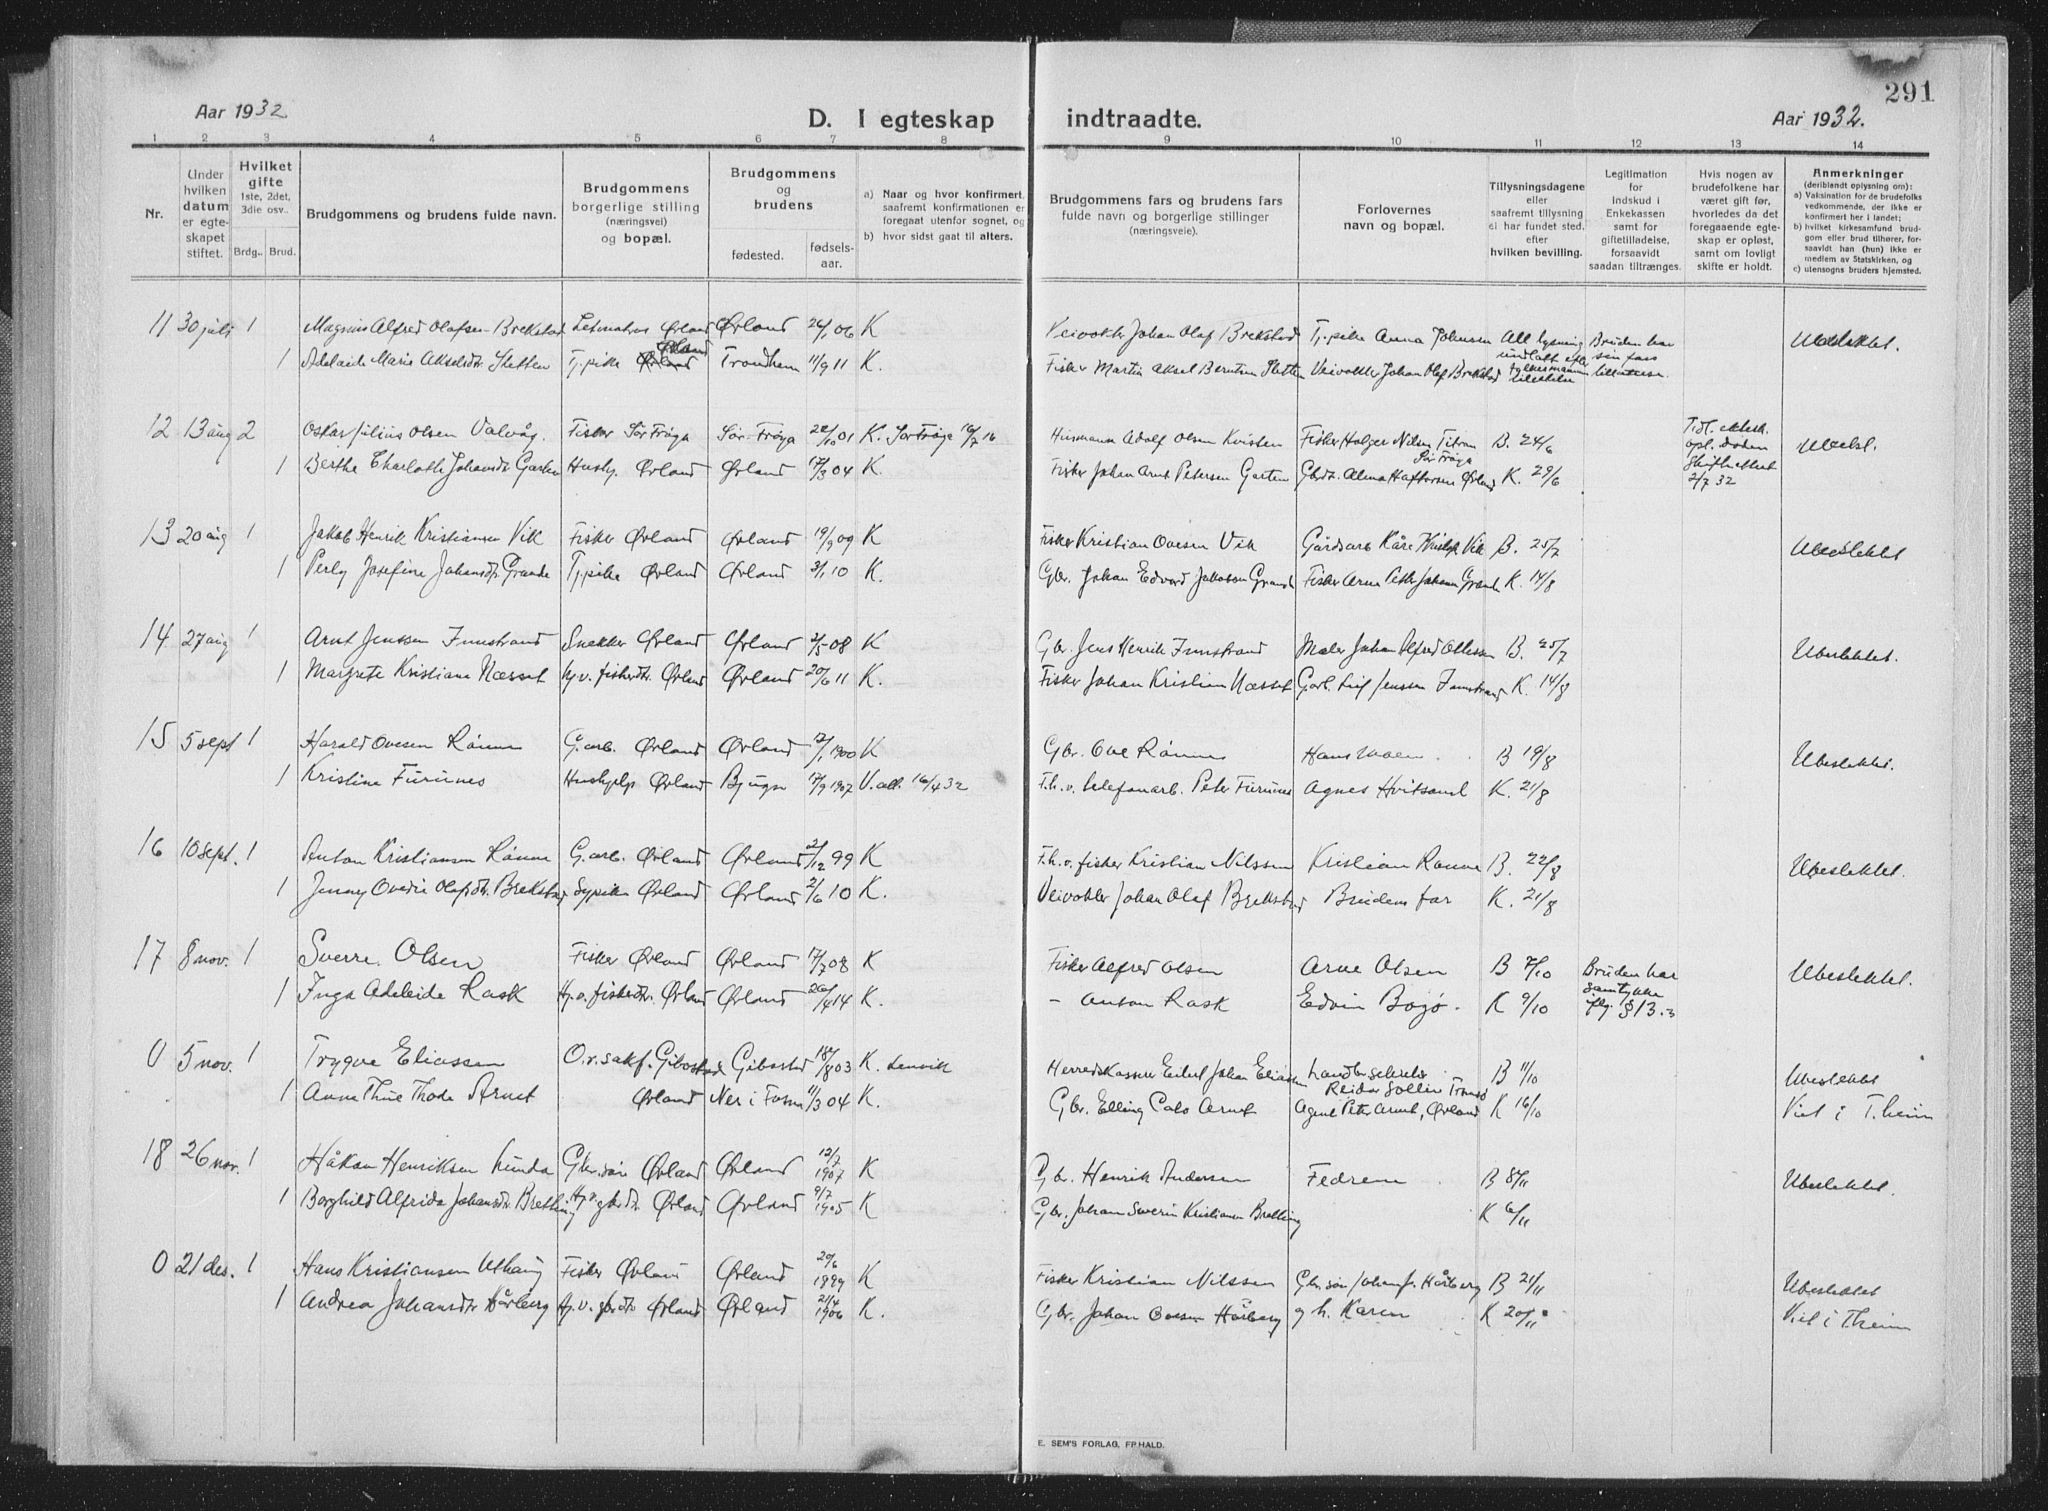 291
Aar 1932
D. I egteskap indtraadte.
Aar 1932.
1 2 3 4 5 6 7 8 9 10 11 12 13 14
Nr.
Under hvilken datum er egteskapet stiftet.
Hvilket gifte 1ste, 2det, 3die osv..
Brdg.. Brud.
Brudgommens og brudens fulde navn.
Brudgommens borgerlige stilling (næringsvei) og bopæl.
Brudgommens og brudens
fødested.
fødsels-aar.
a) Naar og hvor konfirmert, saafremt konfirmationen er foregaat utenfor sognet, og
b) hvor sidst gaat til alters.
Brudgommens fars og brudens fars fulde navn og borgerlige stillinger (næringsveie).
Forlovernes navn og bopæl.
Tillysningsdagene eller saafremt tillysning ei har fundet sted, efter hvilken bevilling.
Legitimation for indskud i Enkekassen samt for giftetilladelse, forsaavidt saadan tiltrænges.
Hvis nogen av brudefolkene har været gift før, hvorledes da det foregaaende egteskap er opløst, samt om lovligt skifte er holdt.
Anmerkninger (deriblandt oplysning om):
a) Vaksination for de brudefolks vedkommende, der ikke er konfirmert her i landet;
b) hvilket kirkesamfund brudgom eller brud tilhører, forsaavidt han (hun) ikke er medlem av Statskirken, og
c) utensogns bruders hjemsted.
11 30 juli 1 Magnus Alfred Olafsen Brekstad Ørland Ørland 26/1 06 K Veivokter Johan Olaf Brekstad Tj.pike Anna Johnsen All lysning undlatt efter fylkesmannens tillatelse Bruden har sin fars tillatelse. Ubeslektet.
1 Adelaide Marie Akseldtr Sletten Tj.pike Ørland Trondhem 11/9 11 K. Fisker Martin Aksel Berntsen Sletten Veivokter Johan Olaf Brekstad
12 13 aug 2 Oskar Julius Olsen Valvåg. Fisker Sør Frøya Sør-Frøya 22/10 01 K. Sør Frøya 16/7 16 Husmann Adolf Olsen Kvisten Fisker Holger Nilsen Titran Sør Frøya B. 24/6 Ubesl.
1 Berthe Charlotte Johansdtr Garten Hushj. Ørland Ørland 17/3 04 K. Fisker Johan Arnt Petersen Garten Gbrdt. Alma Haftorsen Ørland K. 29/6 2/7 32
13 20 aug 1 Jakob Henrik Kristiansen Vik Fisker Ørland Ørland 19/9 09 K Fisker Kristian Ovesen Vik Gårdsarb Kåre Vik B. 25/7 Ubeslektet
1 Perly Josefine Johansdtr Grande Tj.pike Ørland Ørland 3/1 10 K. Gbr. Johan Edvard Jakobsen Grande Fisker Arne Peter Johansen Grande K. 14/8
14 27 aug 1 Arnt Jenssen Innstrand Snekker Ørland Ørland 2/5 08 K Gbr. Jens Henrik Innstrand Maler Johan Alfred Ottesen B. 25/7 Ubeslektet.
1 Margrete Kristiane Næsset hj.v. fiskerdtr. Ørland Ørland 20/6 11 K. Fisker Johan Kristian Næsset Leif Jenssen Innstrand K. 14/8
15 5 sept 1 Harald Ovesen Rønne G.arb. Ørland Ørland 12/1 1900 K Gbr. Ove Rønne Hans Moen B 19/8 Ubeslektet.
1 Kristine Furunes Hushjelp Ørland Bjugn 17/9 1907 V. alt. 16/4 32 F.h.v. telefonarb. Peter Furunes Agnes Hvitsand K. 21/8
16 10 sept. 1 Anton Kristiansen Rønne G.arb. Ørland Ørland 2/12 99 K F.h.v. fisker Kristian Nilssen Kristian Rønne B. 22/8 Ubeslektet.
1 Jenny Ovedie Olafsdtr. Brekstad Sypike Ørland Ørland 2/6 10 K. Veivokter Johan Olaf Brekstad Brudens far K. 21/8
17 8 nov. 1 Sverre Olsen Fisker Ørland Ørland 17/7 08 K Fisker Alfred Olsen Arne Olsen B 7/10 Bruden har samtykke iflg. § 13.3 Ubeslektet.
1 Inga Adeleide Rask Hj.v. fiskerdtr. Ørland Ørland 26/4 14 K. – Anton Rask Edvin Bogø. K 9/10
0 5 nov. 1 Trygve Eliassen O.r.sakf. Gibostad Gibostad 18/8 03 K. Lenvik Herredskasserer Johan Eliassen Landbr.sekretær Reidar Sollie Tromsø B 11/10 Ubeslektet
1 Anna Thode Arnet Ørland Nes i Fosna 11/3 04 K. Gbr. Elling Arnet Agent Peter Arnet, Ørland K 16/10 Viet i T.heim
18 26 nov. 1 Håkon Henriksen Lunda Gbr.søn Ørland Ørland 12/7 1907 K Gbr. Henrik Andersen Fedrene B 8/11 Ubeslektet.
1 Borghild Alfrida Johansdtr Bretting Hj.v. gbrdtr Ørland Ørland 9/7 1905 K Gbr. Johan Severin Kristiansen Bretting K 6/11
0 21 des. 1 Hans Kristiansen Uthaug Fisker Ørland Ørland 20/6 1899 K Fisker Kristian Nilssen Gbr.søn Johan Hårberg B 21/11 Ubeslektet
1 Andrea Johansdtr Hårberg Hj.v. gbrdtr Ørland Ørland 21/4 1906 K. Gbr. Johan Ovesen Hårberg og h. Karen K 20/11 Viet i T.heim
E. SEM'S FORLAG, FR.HALD.